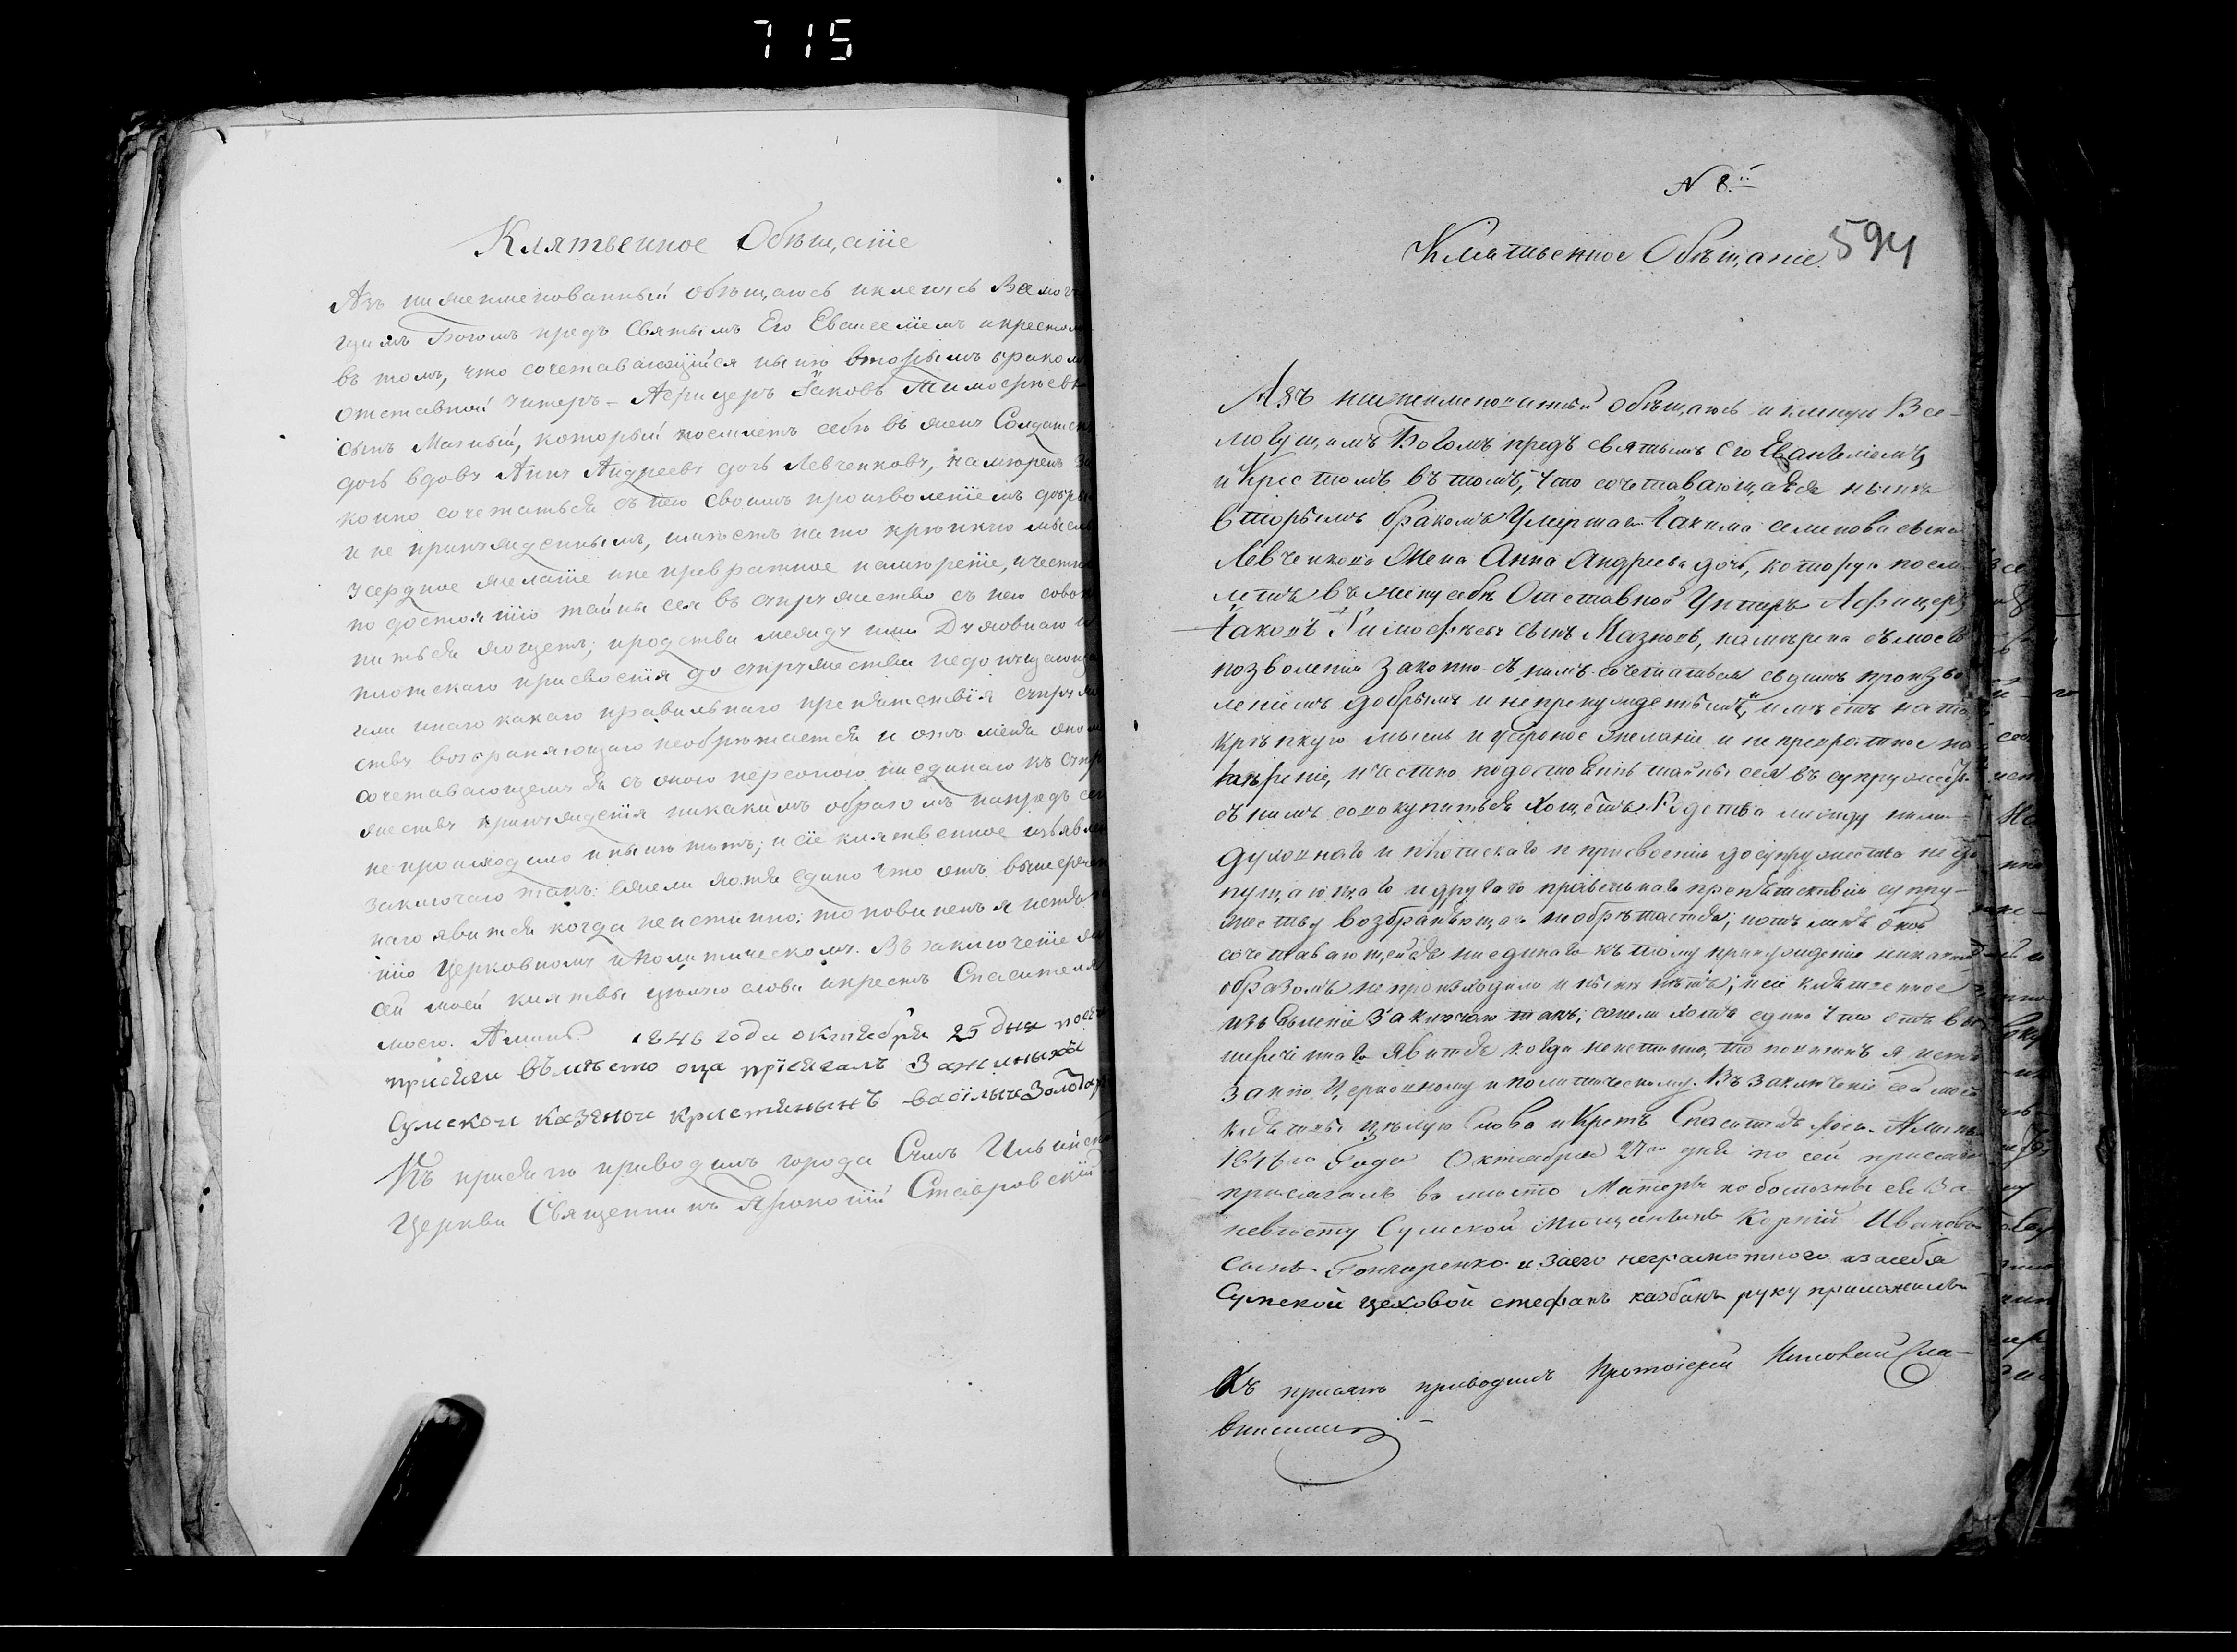 715
Клятвенное Обѣщаніе
Азъ нижеименованный обѣщаюсь и клянусь Всемогу
щимъ Богомъ предъ Святымъ Его Евангеліемъ и крестомъ
въ томъ, что сочетавающійся нынѣ вторымъ бракомъ
отставной Унтеръ-Афицеръ Іаковъ Тимофѣевъ
сынъ Мазный, который поемлетъ себѣ въ жену Солдатск
дочь вдову Анну Андрееву дочь Левченкову, намѣренъ за
конно сочетаться съ нею своимъ произволеніемъ добры
и не принужденнымъ, имѣетъ на то крѣпкую мысль
усердное желаніе и не превратное намѣреніе, и честно
по достоянію тайны сея въ супружество съ нею совоку
питься хощетъ; и родства между ими Духовнаго и
плотскаго присвоенія до супружества недопущающа
или инаго какаго правильнаго препятствія супруже
ству возбраняющаго необрѣтается и отъ мене оном
сочетавающемуся съ оною персоною ни единаго къ супр
жеству принужденія никакимъ образомъ напредъ сего
не происходило и нынѣ нѣтъ; и сіе клятвенное изъявлен
заключаю такъ: ежели хотя едино что отъ вышеречен
наго явится когда неистинно; то повиненъ я истяза
нію Церковному и Политическому. Въ заключеніе же
сей моей клятвы цѣлую слова и крестъ Спасителя
моего. Аминь. 1846 года октября 25 дня по сей
присяги вѣмѣсто оца присягалъ
Сумской казеной кристянинъ васілые Золотар
Къ присягѣ приводилъ города Сумъ Ильинско
Церкви Священникъ Прокопій Ставровскій
N 8.й
Клятвенное Обѣщаніе. 594
Азъ нижеименованный обѣщаюсь и клянуся Все-
могущимъ Богомъ предъ святымъ его Евангеліемъ
и Крестомъ въ томъ, что сочетавающаяся нынѣ
вторымъ бракомъ Умершаго Іакима Семенова сына
Левченкова Жена Анна Андреева дочь, которую поем-
летъ въ жену себѣ Отставной Унтеръ Афицеръ
Іаковъ Тимофѣевъ сынъ Мазновъ, намѣрена съ моего
позволенія законно съ нимъ сочетатися своимъ произво
леніемъ добрымъ и непринужденнымъ, имѣетъ на то
крѣпкую мысль и усердное желаніе и не превратное на
мѣреніе, и честно по достоянію тайны сея въ супружество
съ нимъ совокупиться хощетъ. Родства между ними
духовнаго и плотскаго и присвоенія до супружества не до
пущающаго и другаго правильнаго препятствія супру-
жеству возбраняющаго необрѣтается; и отъ мене оной
сочетавающейся ни единаго къ тому принужденія никакимъ
образомъ не происходило и нынѣ нѣтъ; и сіе клятвенное
изъявленіе заключаю такъ; ежели хотя едино что отъ вы
шереченнаго явится когда неистинно, то повиненъ я истя
занію Церковному и политическому. Въ заключеніе сей моей
клятвы цѣлую Слова и Крестъ Спасителя Моего. Аминь
1846го Года Октября 27го дня по сей присягѣ
присягалъ вмѣсто Матеры по болезны ея За
невѣсту Сумской Мещанинъ Корній Ивановъ
сынъ Гончаренко и заего неграмотного изасебя
Сумской цеховой стефанъ казбанъ руку приложилъ
Къ присягѣ приводилъ Протоіерей Николай Сла-